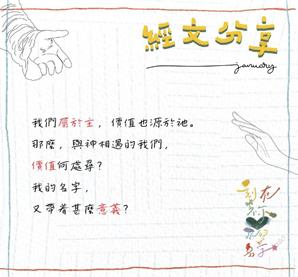 經文分享
january
我們屬於主，價值也源於祂。
那麼，與神相遇的我們，
價值何處尋？
我的名字，
又帶着甚麼意義？